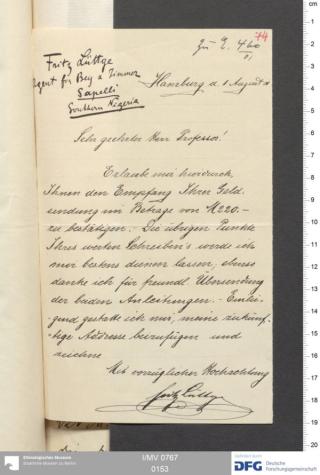 44
zu E. 460
01
Fritz Lüttge
Agent für Bey & Zimmer
Sapelli
Southern Nigeria
Hamburg d. 1 August 01
Sehr geehrter Herr Professor!
Erlaube mir hierdurch,
Ihnen den Empfang Ihrer Geld-
sendung im Betrage von M 220.–
zu bestätigen. – Die übrigen Punkte
Ihres werten Schreiben's werde ich
mir bestens dienen lassen; ebenso
danke ich für freundl. Übersendung
der beiden Anleitungen. – Einlie-
gend gestatte ich mir, meine zukünf-
tige Addresse beizufügen und
zeichne
Mit vorzüglicher Hochachtung
Fritz Lüttge
Ethnologisches Museum
Staatliche Museen zu Berlin
I/MV 0767
0153
gefördert durch
DFG Deutsche
Forschungsgemeinschaft
cm
1
2
3
4
5
6
7
8
9
10
11
12
13
14
15
16
17
18
19
20